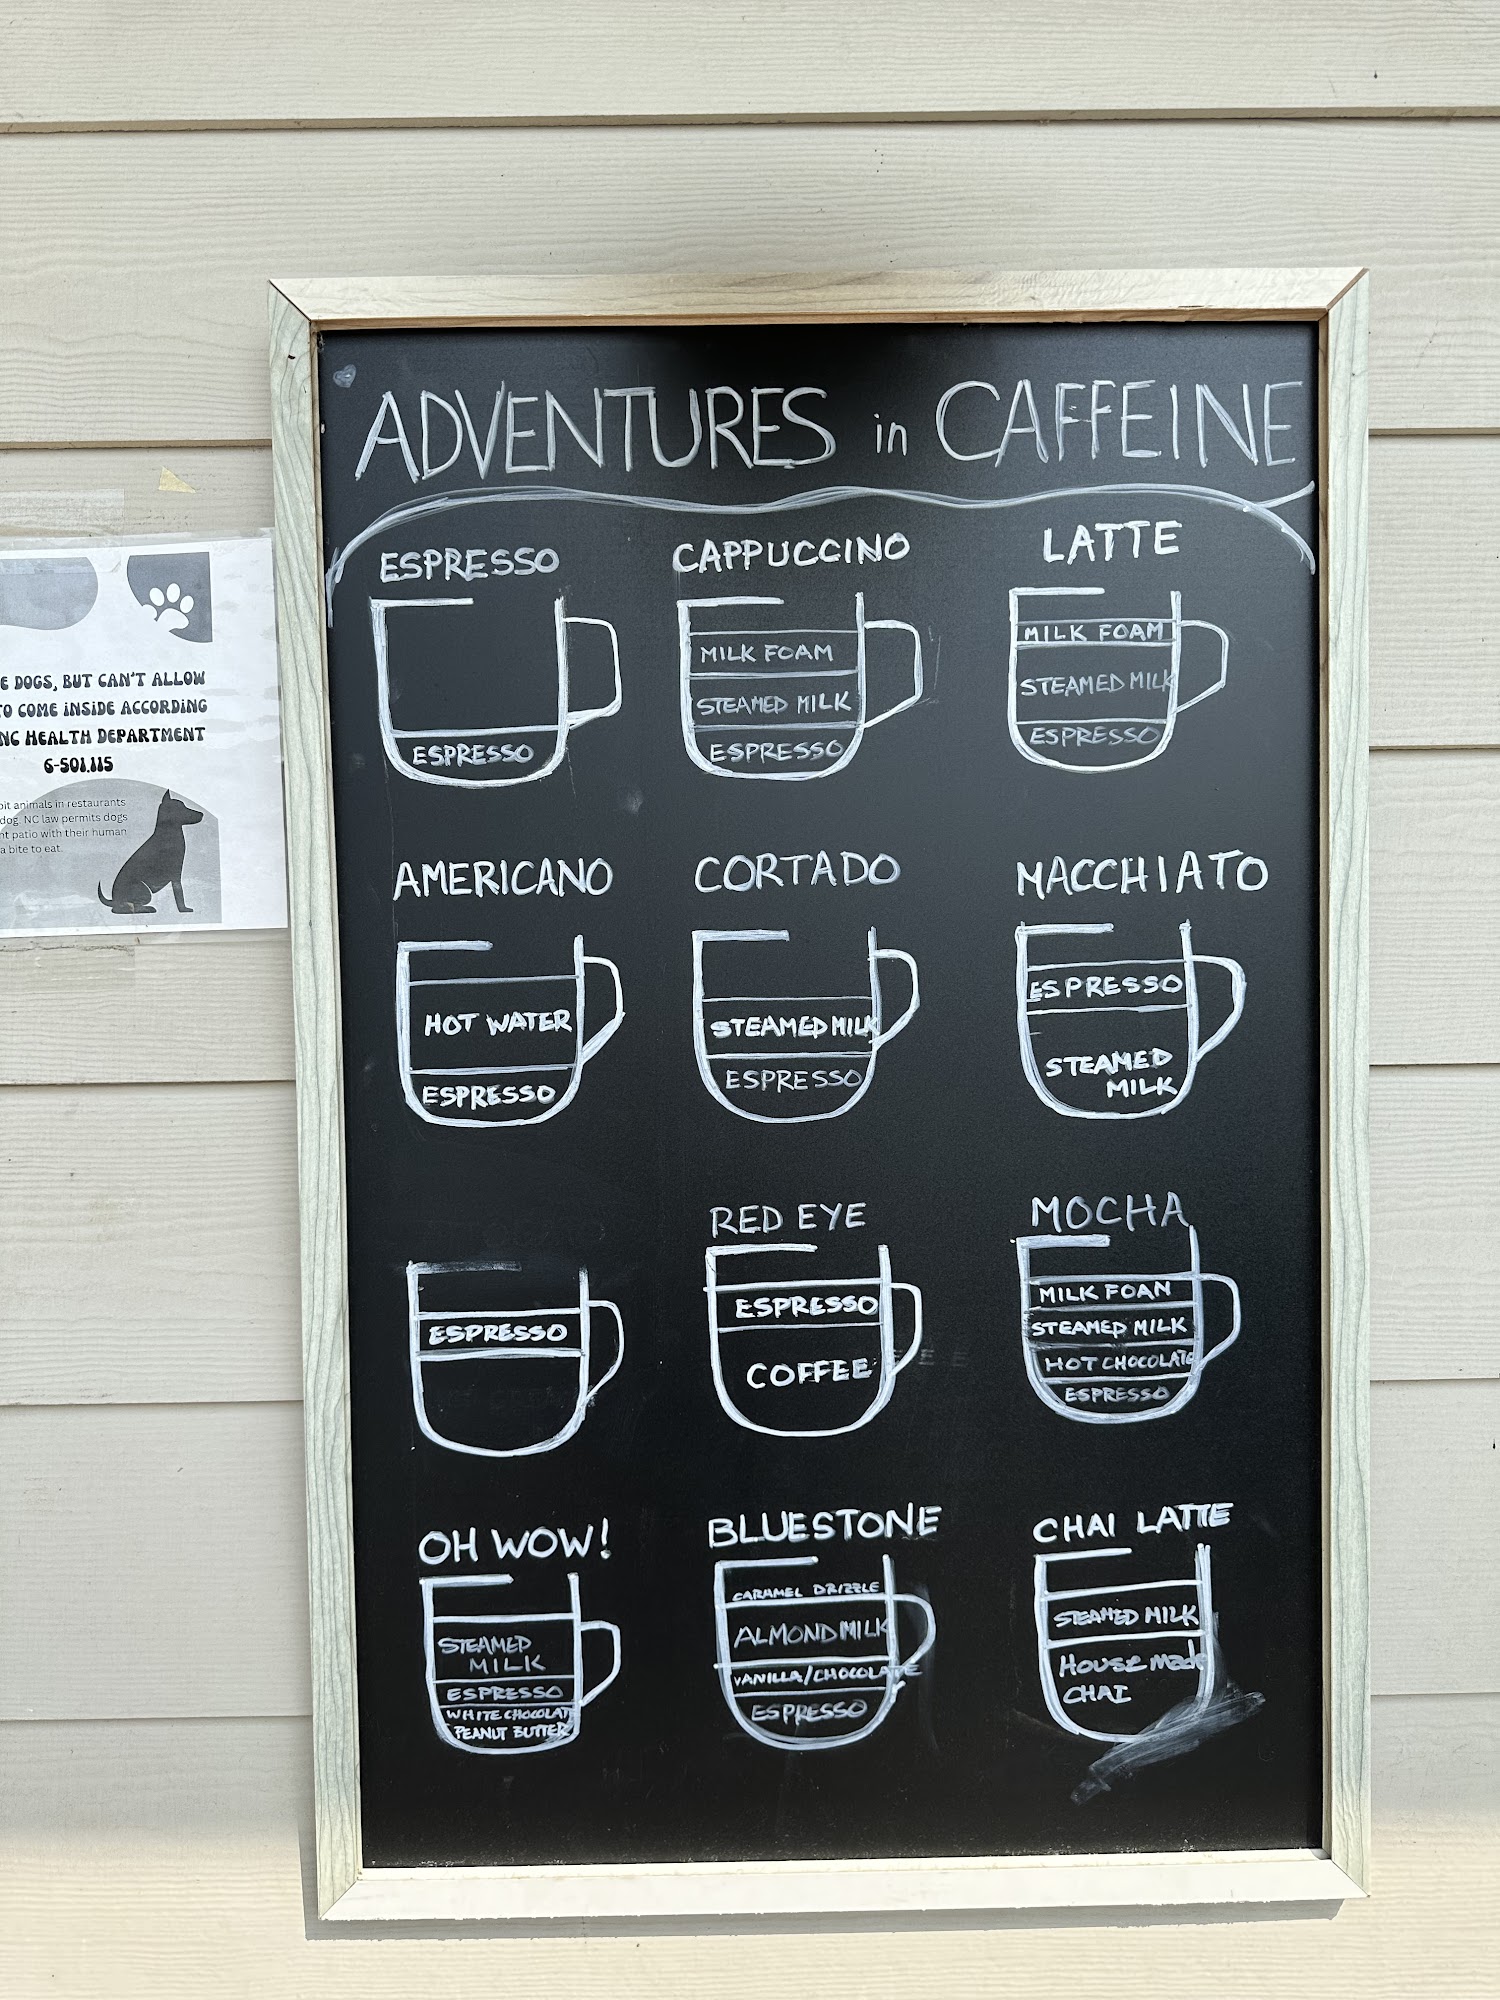 E DOGS, BUT CAN'T ALLOW
TO COME INSIDE ACCORDING
NC HEALTH DEPARTMENT
6-501.115
bit animals in restaurants
dog. NC law permits dogs
nt patio with their human
a bite to eat.
ADVENTURES in CAFFEINE
ESPRESSO
ESPRESSO
CAPPUCCINO
MILK FOAM
STEAMED MILK
ESPRESSO
LATTE
MILK FOAM
STEAMED MILK
ESPRESSO
AMERICANO
HOT WATER
ESPRESSO
CORTADO
STEAMED MILK
ESPRESSO
MACCHIATO
ESPRESSO
STEAMED
MILK
ESPRESSO
RED EYE
ESPRESSO
COFFEE
MOCHA
MILK FOAM
STEAMED MILK
HOT CHOCOLATE
ESPRESSO
OH WOW!
STEAMED
MILK
ESPRESSO
WHITE CHOCOLAT
PEANUT BUTTER
BLUESTONE
CARAMEL DRIZZLE
ALMOND MILK
VANILLA/CHOCOLATE
ESPRESSO
CHAI LATTE
STEAMED MILK
House made
CHAI